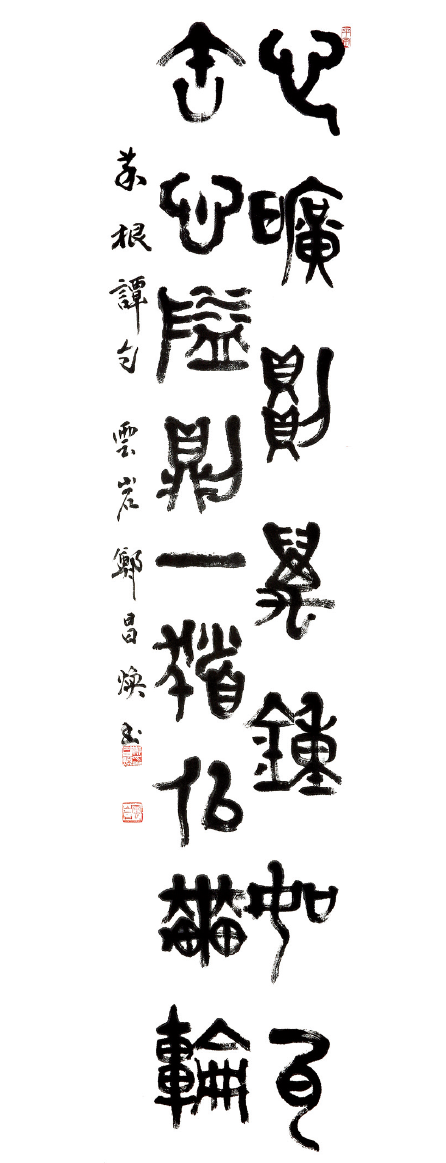 心曠則萬鍾如瓦
缶心隘則一髮似車輪
菜根譚句 雲岩 鄭昌煥書